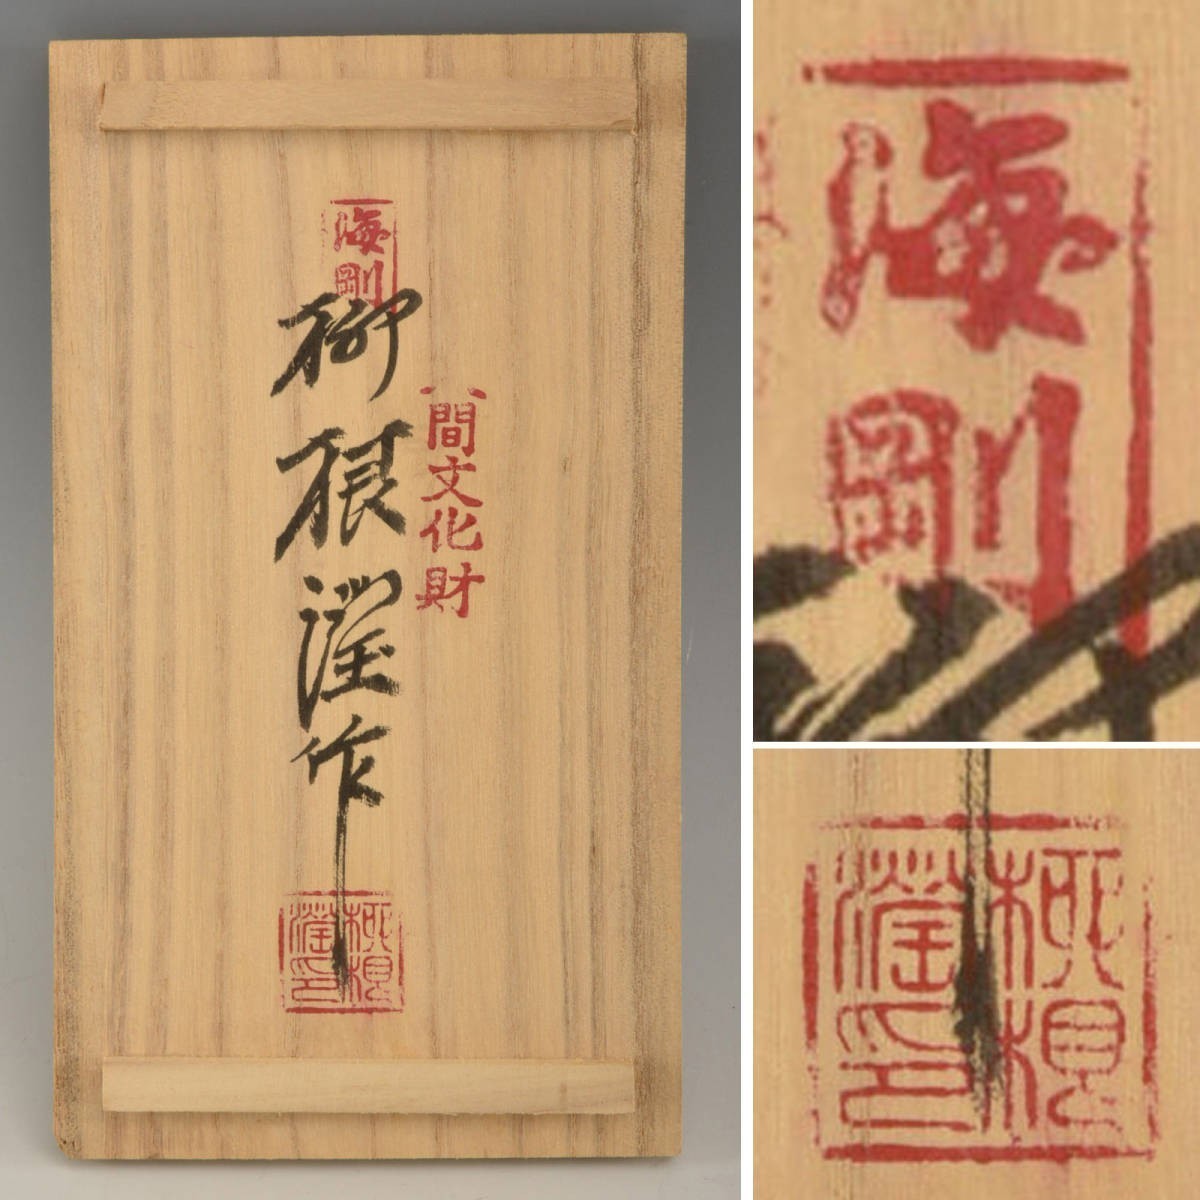 海剛
人間文化財
柳根瀅作
柳根
瀅印
海剛
柳根
瀅印